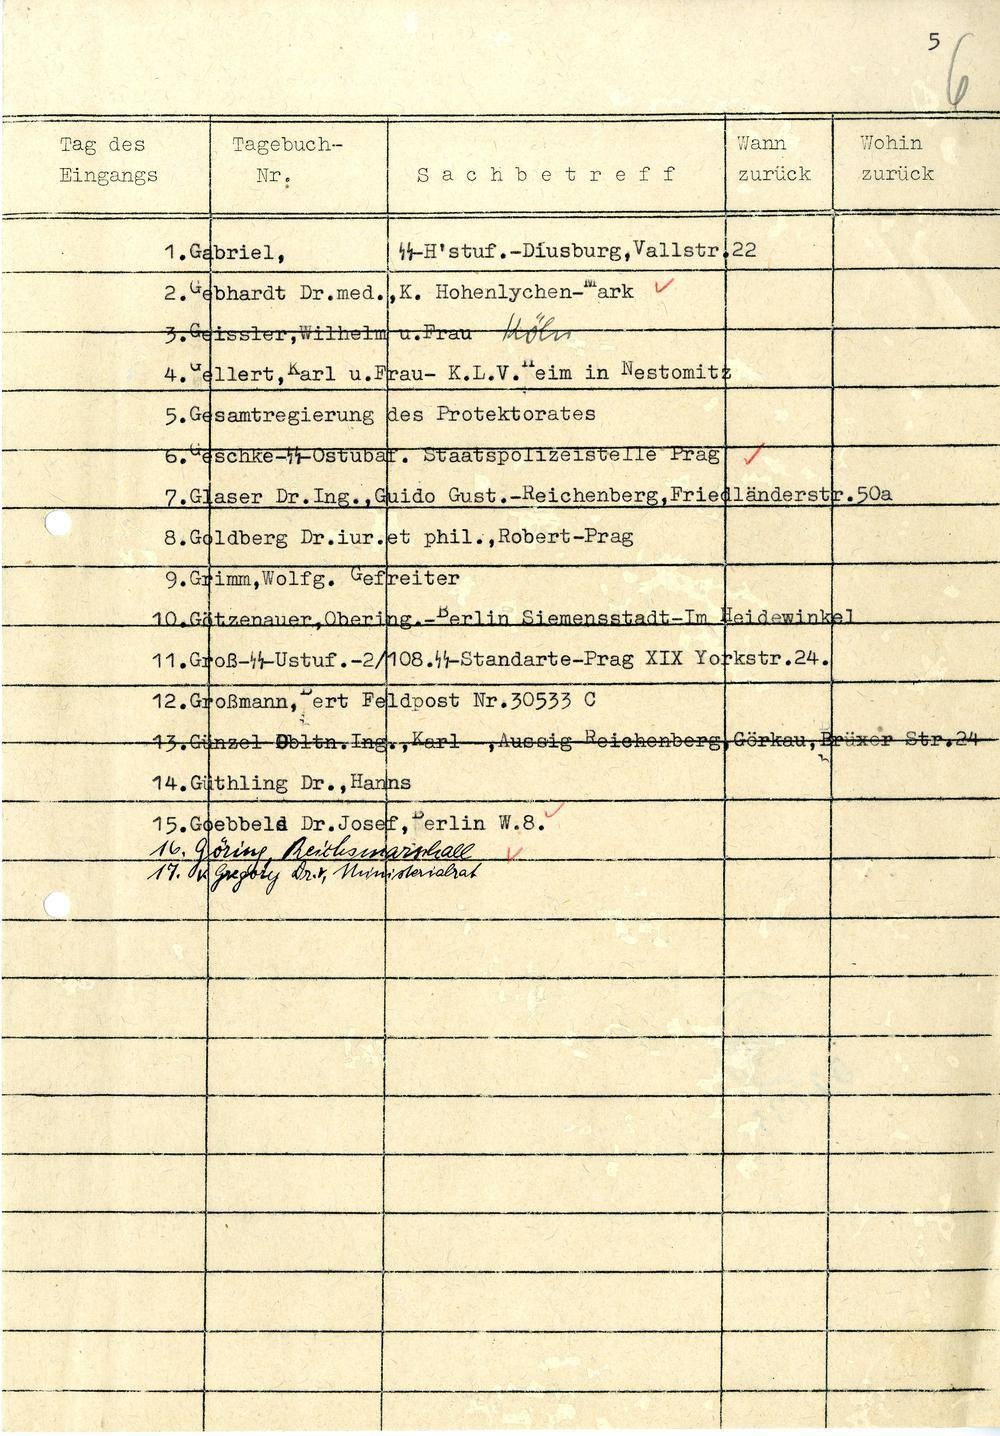 5
6
Tag des Eingangs
Tagebuch-Nr.
Sachbetreff
Wann zurück
Wohin zurück
1.Gabriel, ᛋᛋ-H'stuf.-Diusburg,Vallstr.22
2.Gebhardt Dr.med.,K. Hohenlychen-Mark
3.Geissler,Wilhelm u.Frau Köln
4.Gellert,Karl u.Frau- K.L.V.Heim in Nestomitz
5.Gesamtregierung des Protektorates
6.Geschke-ᛋᛋ-Ostubaf. Staatspolizeistelle Prag
7.Glaser Dr.Ing.,Guido Gust.-Reichenberg,Friedländerstr.50a
8.Goldberg Dr.iur.et phil.,Robert-Prag
9.Grimm,Wolfg. Gefreiter
10.Götzenauer,Obering.-Berlin Siemensstadt-Im Heidewinkel
11.Groß-ᛋᛋ-Ustuf.-2/108.ᛋᛋ-Standarte-Prag XIX Yorkstr.24.
12.Großmann,Bert Feldpost Nr.30533 C
13.Günzel Obltn.Ing.,Karl ,Aussig Reichenberg,Görkau,Brüxer Str.24
14.Güthling Dr.,Hanns
15.Goebbels Dr.Josef,Berlin W.8.
16. Göring, Reichsmarschall
17. v. Gregory Dr. , Ministerialrat